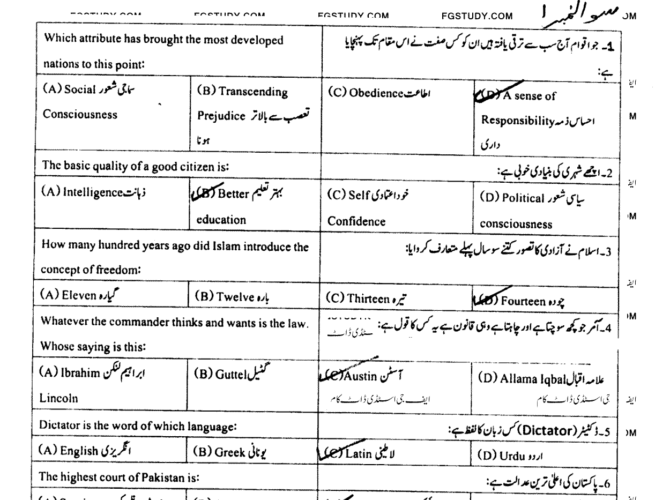 FGSTUDY.COM FGSTUDY.COM سوالنمبر 1
Which attribute has brought the most developed nations to this point:
1۔ جو اقوام آج سب سے ترقی یافتہ ہیں ان کو کس صفت نے اس مقام تک پہنچایا ہے:
(A) Social سماجی شعور Consciousness
(B) Transcending Prejudice تعصب سے بالاتر ہونا
(C) Obedience اطاعت
(D) A sense of Responsibility احساس ذمہ داری
The basic quality of a good citizen is:
2۔ اچھے شہری کی بنیادی خوبی ہے:
(A) Intelligence ذہانت
(B) Better بہتر تعلیم education
(C) Self خود اعتمادی Confidence
(D) Political سیاسی شعور consciousness
How many hundred years ago did Islam introduce the concept of freedom:
3۔ اسلام نے آزادی کا تصور کتنے سو سال پہلے متعارف کروایا:
(A) Eleven گیارہ
(B) Twelve بارہ
(C) Thirteen تیرہ
(D) Fourteen چودہ
Whatever the commander thinks and wants is the law. Whose saying is this:
4۔ آمر جو کچھ سوچتا ہے اور چاہتا ہے وہی قانون ہے یہ کس کا قول ہے:
(A) Ibrahim ابراہیم لنکن Lincoln
(B) Guttel گٹیل
(C) Austin آسٹن
(D) Allama Iqbal علامہ اقبال
ایف جی اسٹڈی ڈاٹ کام
Dictator is the word of which language:
5۔ ڈکٹیٹر (Dictator) کس زبان کا لفظ ہے:
(A) English انگریزی
(B) Greek یونانی
(C) Latin لاطینی
(D) Urdu اردو
The highest court of Pakistan is:
6۔ پاکستان کی اعلیٰ ترین عدالت ہے: